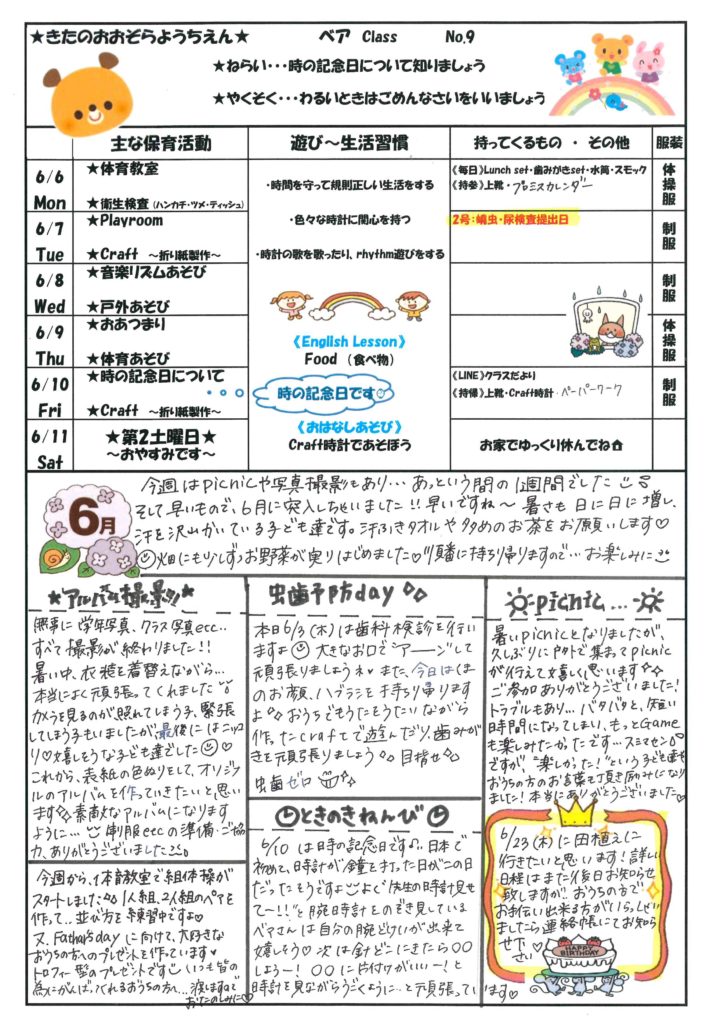 ★きたのおおぞらようちえん★　ベア Class　No.9
★ねらい・・・時の記念日について知りましょう
★やくそく・・・わるいときはごめんなさいをいいましょう
主な保育活動　遊び～生活習慣　持ってくるもの ・ その他　服装
6/6 Mon
★体育教室
★衛生検査（ハンカチ・ツメ・ティッシュ）
・時間を守って規則正しい生活をする
《毎日》Lunch set・歯みがきset・水筒・スモック
《持参》上靴・プロミスカレンダー
体操服
6/7 Tue
★Playroom
★Craft ～折り紙製作～
・色々な時計に関心を持つ
・時計の歌を歌ったり、rhythm遊びをする
2号：蟯虫・尿検査提出日
制服
6/8 Wed
★音楽リズムあそび
★戸外あそび
制服
6/9 Thu
★おあつまり
★体育あそび
《English Lesson》
Food （食べ物）
体操服
6/10 Fri
★時の記念日について
★Craft ～折り紙製作～
時の記念日です
《おはなしあそび》
Craft時計であそぼう
《LINE》クラスだより
《持帰》上靴・Craft時計・ペーパーワーク
制服
6/11 Sat
★第2土曜日★
～おやすみです～
お家でゆっくり休んでね
6月
今週はpicnicや写真撮影もあり…あっという間の1週間でした
そして早いもので、6月に突入しちゃいました!!早いですね～ 暑さも日に日に増し、
汗を沢山かいている子ども達です。汗ふきタオルや多めのお茶をお願いします♡
畑にも少しずつお野菜が実りはじめました♡順番に持ち帰りますので…お楽しみに
★アルバム撮影★
無事に学年写真、クラス写真ecc…
すべて撮影が終わりました!!
暑い中、衣装を着替えながら…
本当によく頑張ってくれました
カメラを見るのが照れてしまう子、緊張
してしまう子もいましたが、最後にはニッコ
リ♡嬉しそうな子ども達でした
これから、表紙の色ぬりをして、オリジナ
ルのアルバムを作っていきたいと思い
ます 素敵なアルバムになります
ように… 制服eccの準備・ご協
力、ありがとうございました
今週から、体育教室で組体操が
スタートしました 1人組、2人組のペアを
作って…並び方を練習中ですよ
又、Father's dayに向けて、大好きな
おうちの方へのプレゼントを作っています♥
トロフィー型のプレゼントです いつも皆の
為にがんばってくれるおうちの方へ…渡しますので
おたのしみに♡
虫歯予防day
本日6/3(木)は歯科検診を行い
ますよ 大きなお口で“アーン”して
頑張りましょうネ♥また、今日は
のお顔、ハブラシを持ち帰ります
よ おうちでもうたをうたいながら
作ったCraftで遊んだり、歯みが
きを頑張りましょう 目指せ
虫歯ゼロ
ときのきねんび
6/10 は時の記念日です 日本で
初めて、時計が鐘を打った日がこの日
だったそうですよ よく“先生の時計見せ
て～!!”と腕時計をのぞき見している
ベアさんは自分の腕どけいが出来て
嬉しそう♡ 次は針がどこにきたら〇〇
しよう―! 〇〇に片付けがいい―!と
時計を見ながらうごくように…と頑張っています♡
picnic…
暑いpicnicとなりましたが、
久しぶりに戸外で集まってpicnic
が行えて嬉しく思います
ご参加ありがとうございました!
トラブルもあり…バタバタと、短い
時間になってしまい、もっとGame
も楽しみたかったです…スミマセン
ですが、“楽しかった!”という子ども達や
おうちの方のお言葉を頂き励みになり
ました!本当にありがとうございました♡
6/23(木)に田植えに
行きたいと思います!詳しい
日程はまた後日お知らせ
致しますが…おうちの方で
お手伝い出来る方がいらっしゃい
ましたら連絡帳にてお知ら
せ下さい
HAPPY BIRTHDAY